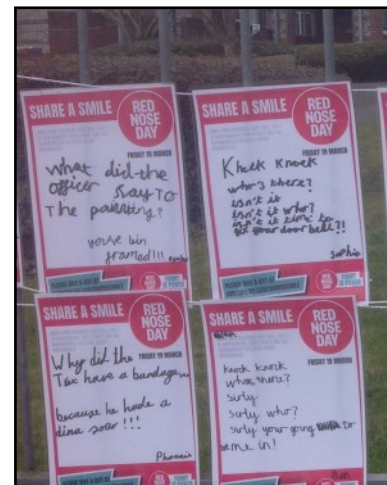 SHARE A SMILE
RED
NOSE
DAY
FRIDAY 19 MARCH
what did the
officer say To
The painting?
youve bin
framed!!!
SHARE A SMILE
RED
NOSE
DAY
FRIDAY 19 MARCH
Knock Knock
who's there?
isn't it
isn't it who?
isn't it time to
fix your door bell?!
Sophie
RED
NOSE
FUNNY
IS POWER
SHARE A SMILE
RED
NOSE
DAY
FRIDAY 19 MARCH
Why did the
Tex have a bandage
because he hade a
dina soar!!!
Phoenix
SHARE A SMILE
RED
NOSE
DAY
FRIDAY 19 MARCH
knock knock
whos there?
sirly
sirly who?
sirly your going to
come in!